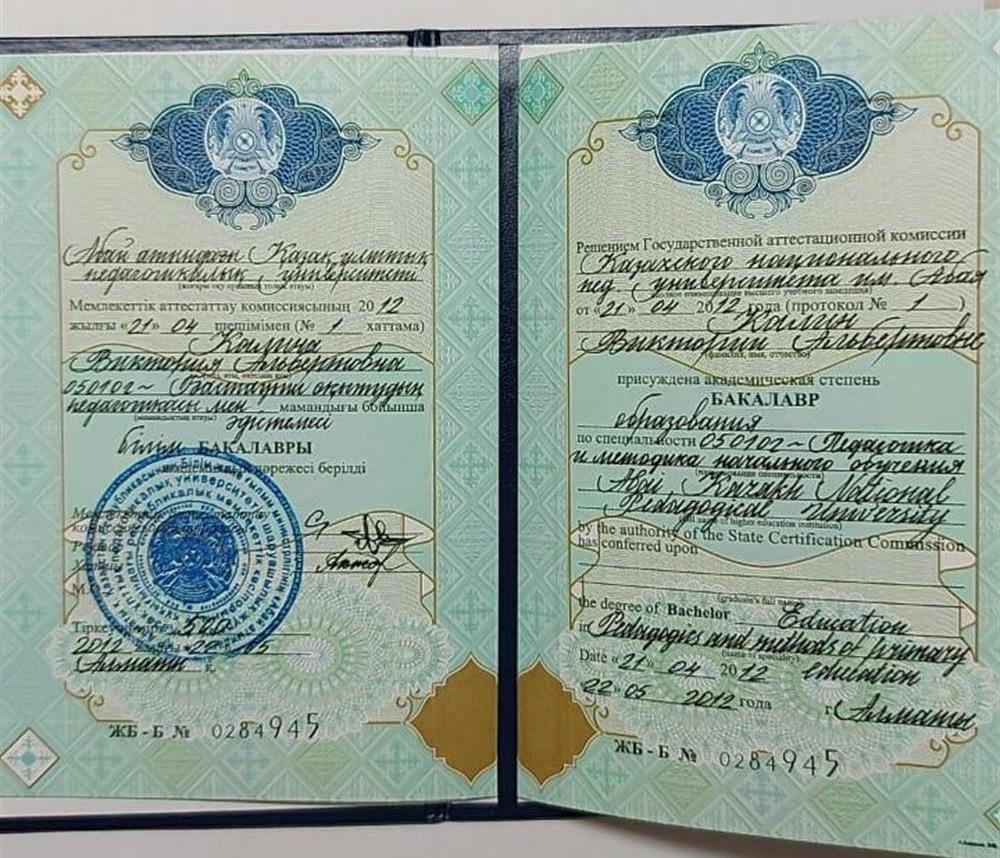 Абай атындағы Қазақ ұлттық
педагогикалық университеті
(жоғары оқу орнының толық атауы)
Мемлекеттік аттестаттау комиссиясының 2012
жылғы «21» 04 шешімімен (№ 1 хаттама)
Калина
Виктория Альбертовна
050102 – Бастауыш оқытудың
педагогикасы мен мамандығы бойынша
(мамандықтың атауы)
әдістемесі
білім БАКАЛАВРЫ
академиялық дәрежесі берілді
М.О.
Тіркеу нөмірі 580
2012 жылғы 22 05
Алматы қ.
ЖБ - Б № 0284945
Решением Государственной аттестационной комиссии
Казахского национального
пед. университета им. Абая
(полное наименование высшего учебного заведения)
от «21» 04 2012 года (протокол № 1 )
Виктории Альбертовне
(фамилия, имя, отчество)
присуждена академическая степень
БАКАЛАВР
образования
по специальности 050102 – Педагогика
и методика начального обучения
(наименование специальности)
Abai Kazakh National
Pedagogical University
(full name of higher education institution)
by the authority of the State Certification Commission
has conferred upon
(graduate's full name)
the degree of Bachelor Education
in Pedagogics and methods of primary
(name of speciality)
Date «21» 04 2012 education
«22» 05 2012 года г. Алматы
ЖБ - Б № 0284945